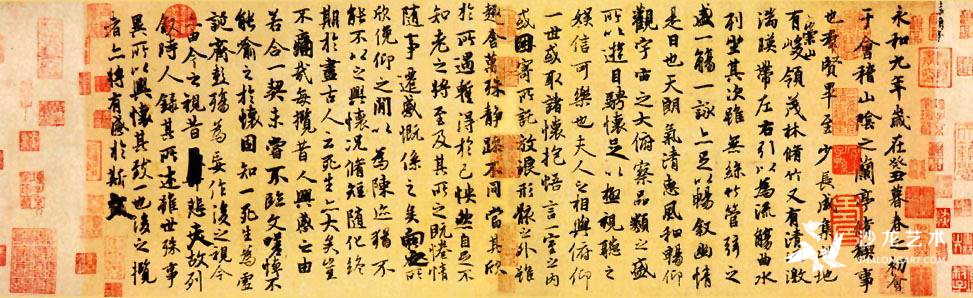 永和九年歲在癸丑暮春之初會
于會稽山陰之蘭亭脩稧事
也羣賢畢至少長咸集此地
有崇山峻領茂林脩竹又有清流激
湍暎帶左右引以為流觴曲水
列坐其次雖無絲竹管弦之
盛一觴一詠亦足以暢敘幽情
是日也天朗氣清惠風和暢仰
觀宇宙之大俯察品類之盛
所以遊目騁懷足以極視聽之
娛信可樂也夫人之相與俯仰
一世或取諸懷抱悟言一室之內
或因寄所託放浪形骸之外雖
趣舍萬殊靜躁不同當其欣
於所遇暫得於己怏然自足不
知老之將至及其所之既惓情
隨事遷感慨係之矣向之所
欣俛仰之閒以為陳迹猶不
能不以之興懷況脩短隨化終
期於盡古人云死生亦大矣豈
不痛哉每攬昔人興感之由
若合一契未嘗不臨文嗟悼不
能喻之於懷固知一死生為虛
誕齊彭殤為妄作後之視今
亦由今之視昔悲夫故列
敘時人錄其所述雖世殊事
異所以興懷其致一也後之攬
者亦將有感於斯文
沙龙艺术
SHALONGART.COM